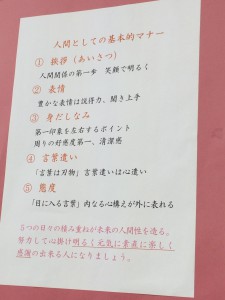 人間としての基本的マナー
① 挨拶（あいさつ）
人間関係の第一歩 笑顔で明るく
② 表情
豊かな表情は説得力、聞き上手
③ 身だしなみ
第一印象を左右するポイント
周りの好感度第一、清潔感
④ 言葉遣い
「言葉は刃物」言葉遣いは心遣い
⑤ 態度
「目に入る言葉」内なる心構えが外に表れる
５つの日々の積み重ねが本来の人間性を造る。
努力して心掛け明るく元気に素直に楽しく
感謝の出来る人になりましょう。